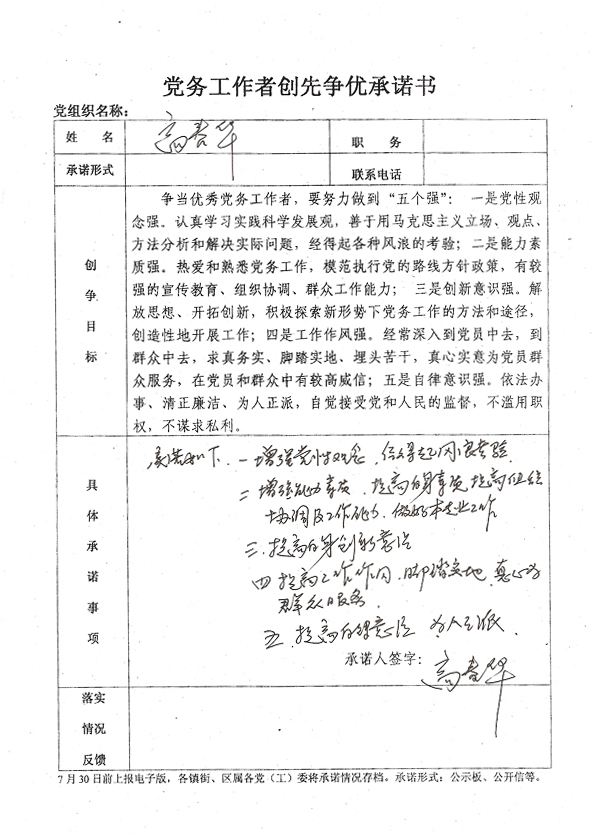 党务工作者创先争优承诺书
党组织名称：
姓 名 高春华 职 务
承诺形式 联系电话
创争目标
争当优秀党务工作者，要努力做到“五个强”： 一是党性观
念强。认真学习实践科学发展观，善于用马克思主义立场、观点、
方法分析和解决实际问题，经得起各种风浪的考验；二是能力素
质强。热爱和熟悉党务工作，模范执行党的路线方针政策，有较
强的宣传教育、组织协调、群众工作能力； 三是创新意识强。解
放思想、开拓创新，积极探索新形势下党务工作的方法和途径，
创造性地开展工作；四是工作作风强。经常深入到党员中去，到
群众中去，求真务实、脚踏实地、埋头苦干，真心实意为党员群
众服务，在党员和群众中有较高威信；五是自律意识强。依法办
事、清正廉洁、为人正派，自觉接受党和人民的监督，不滥用职
权，不谋求私利。
具体承诺事项
承诺如下．一增强党性观念．经得起风浪考验
二增强能力素质．提高自身素质提高组织
协调及工作能力．做好本职工作
三．提高自身创新意识
四提高工作作风．脚踏实地．真心为
群众服务．
五．提高自律意识 为人正派．
承诺人签字： 高春华
落实
情况
反馈
7 月 30 日前上报电子版，各镇街、区属各党（工）委将承诺情况存档。承诺形式：公示板、公开信等。